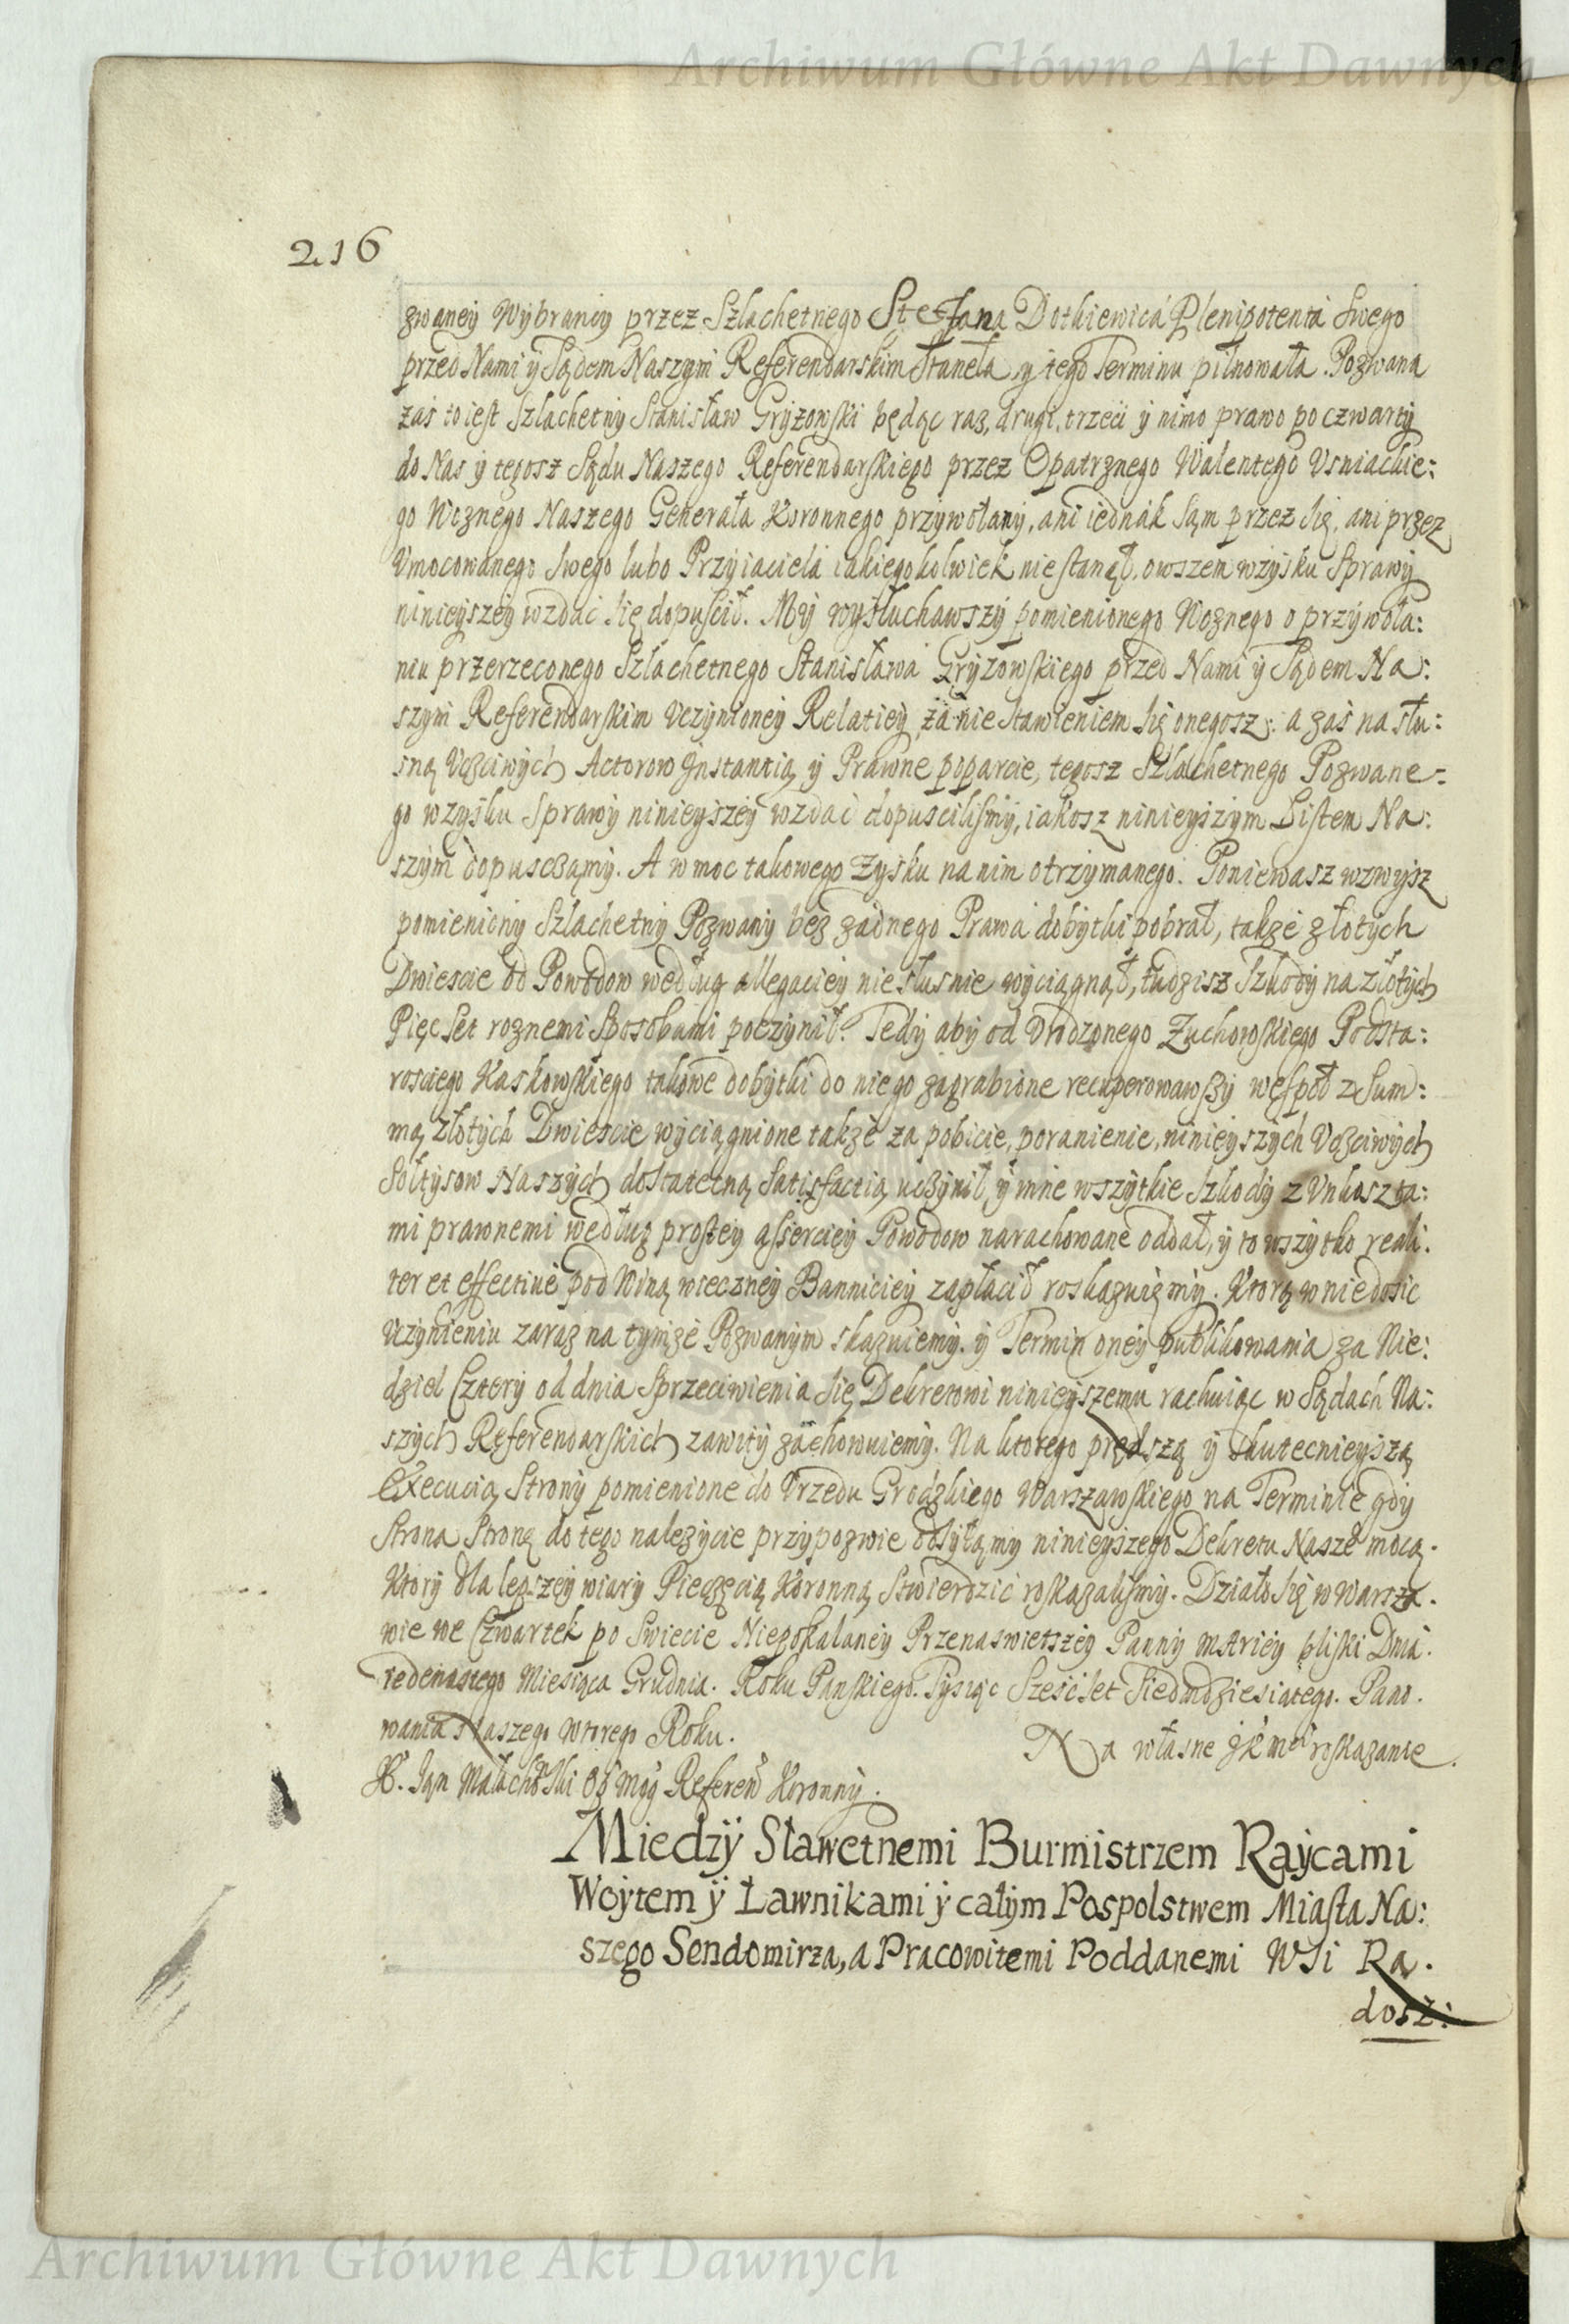 Archiwum Główne Akt Dawnych
216
zwaney Wybraney przez Szlachetnego Stefana Dotkiewica Plenipotenta Swego
przed Nami ÿ Sądem Naszym Referendarskim stanęła, y tego Terminu pilnowała. Pozwana
zaś to iest Szlachetny Stanisław Gryzowski będąc raz, drugi, trzeci ÿ nimo prawo po czwarty
do Nas ÿ tegosz Sądu Naszego Referendarskiego przez Opatrznego Walentego Usniackie:
go Woznego Naszego Generała Koronnego przywołany, ani iednák sąm przez się, ani przez
Vmocowanego Swego lubo Przyiaciela iakiegokolwiek nie stanął, owszem wzysku Sprawy
ninieyszey wzdać się dopuścił. My wysłuchawszy pomienionego Woznego o przywoła:
niu przerzeconego Szlachetnego Stanisława Gryzowskiego przed Nami ÿ Sądem Na:
szym Referendarskim Vczynioney Relatiey, za nie stawieniem się onegosz: a zaś na słu:
sną Vczciwych Actorow Instantią ÿ Prawne poparcie, tegosz Szlachetnego Pozwane=
go wzysku Sprawy ninieyszey wzdać dopuscilismy, iakosz ninieyszym Listem Na:
szym dopusczamy. A w moc takowego Zysku na nim otrzymanego. Poniewasz wzwysz
pomieniony Szlachetny Pozwany bez żadnego Prawa dobytki pobrał, także złotych
Dwiescie od Powodow według allegaciey niesłusnie wyciągnął, tudzisz Szkody na złotych
Pięć Set roznemi Sposobami poczynił. Tedy aby od Urodzonego Zuchowskiego Podsta:
rosciego Kaskowskiego takowe dobytki do niego zagrabione recuperowawszy wespoł z Sum:
mą złotych Dwiescie wyciągnione także za pobicie, poranienie, ninieyszych Vczciwych
Sołtysow Naszych dostateczną Satisfactią uczynił, ÿ inne wszytkie Szkody z Vnkoszta:
mi prawnemi według prostey assertiey Powodow narachowane oddał, ÿ to wszytko reali:
ter et effective pod Winą wieczney Banniciey zapłacił roskazuiemy. Ktorą w niedosic
Vczynieniu zaraz na tymże Pozwanym skazuiemy. ÿ Termin oney publikowania za Nie:
dziel Cztery od dnia Sprzeciwienia się Dekretowi ninieyszemu rachuiąc w Sądach Na:
szych Referendarskich zawity zachowuiemy. Na ktorego prędszą ÿ skutecnieyszą
Execucią Strony pomienione do Vrzedu Grodzkiego Warszawskiego na Terminie gdy
Strona Stronę do tego nalezycie przypozwie odsyłąmy ninieyszego Dekretu Nasze mocą.
Ktory dla lepszey wiary Pieczęcią Koronną Stwierdzić roskazalismy. Działo się w Warsza.
wie we Czwartek po Swiecie Niepokalaney Przenaswietszey Panny Mariey bliski Dnia.
Iedenastego Miesiąca Grudnia. Roku Panskiego. Tysiąc Sześćset Siedmdziesiątego. Pano.
wania Naszego wtorego Roku.
Na własne JKMci roskazanie.
X. Ian Małachowski Referend Koronny.
Miedzÿ Sławetnemi Burmistrzem Raÿcami
Woytem ÿ Ławnikami ÿ całym Pospolstwem Miasta Na:
szego Sendomirza, a Pracowitemi Poddanemi Wsi Ra.
dosz:
Archiwum Główne Akt Dawnych